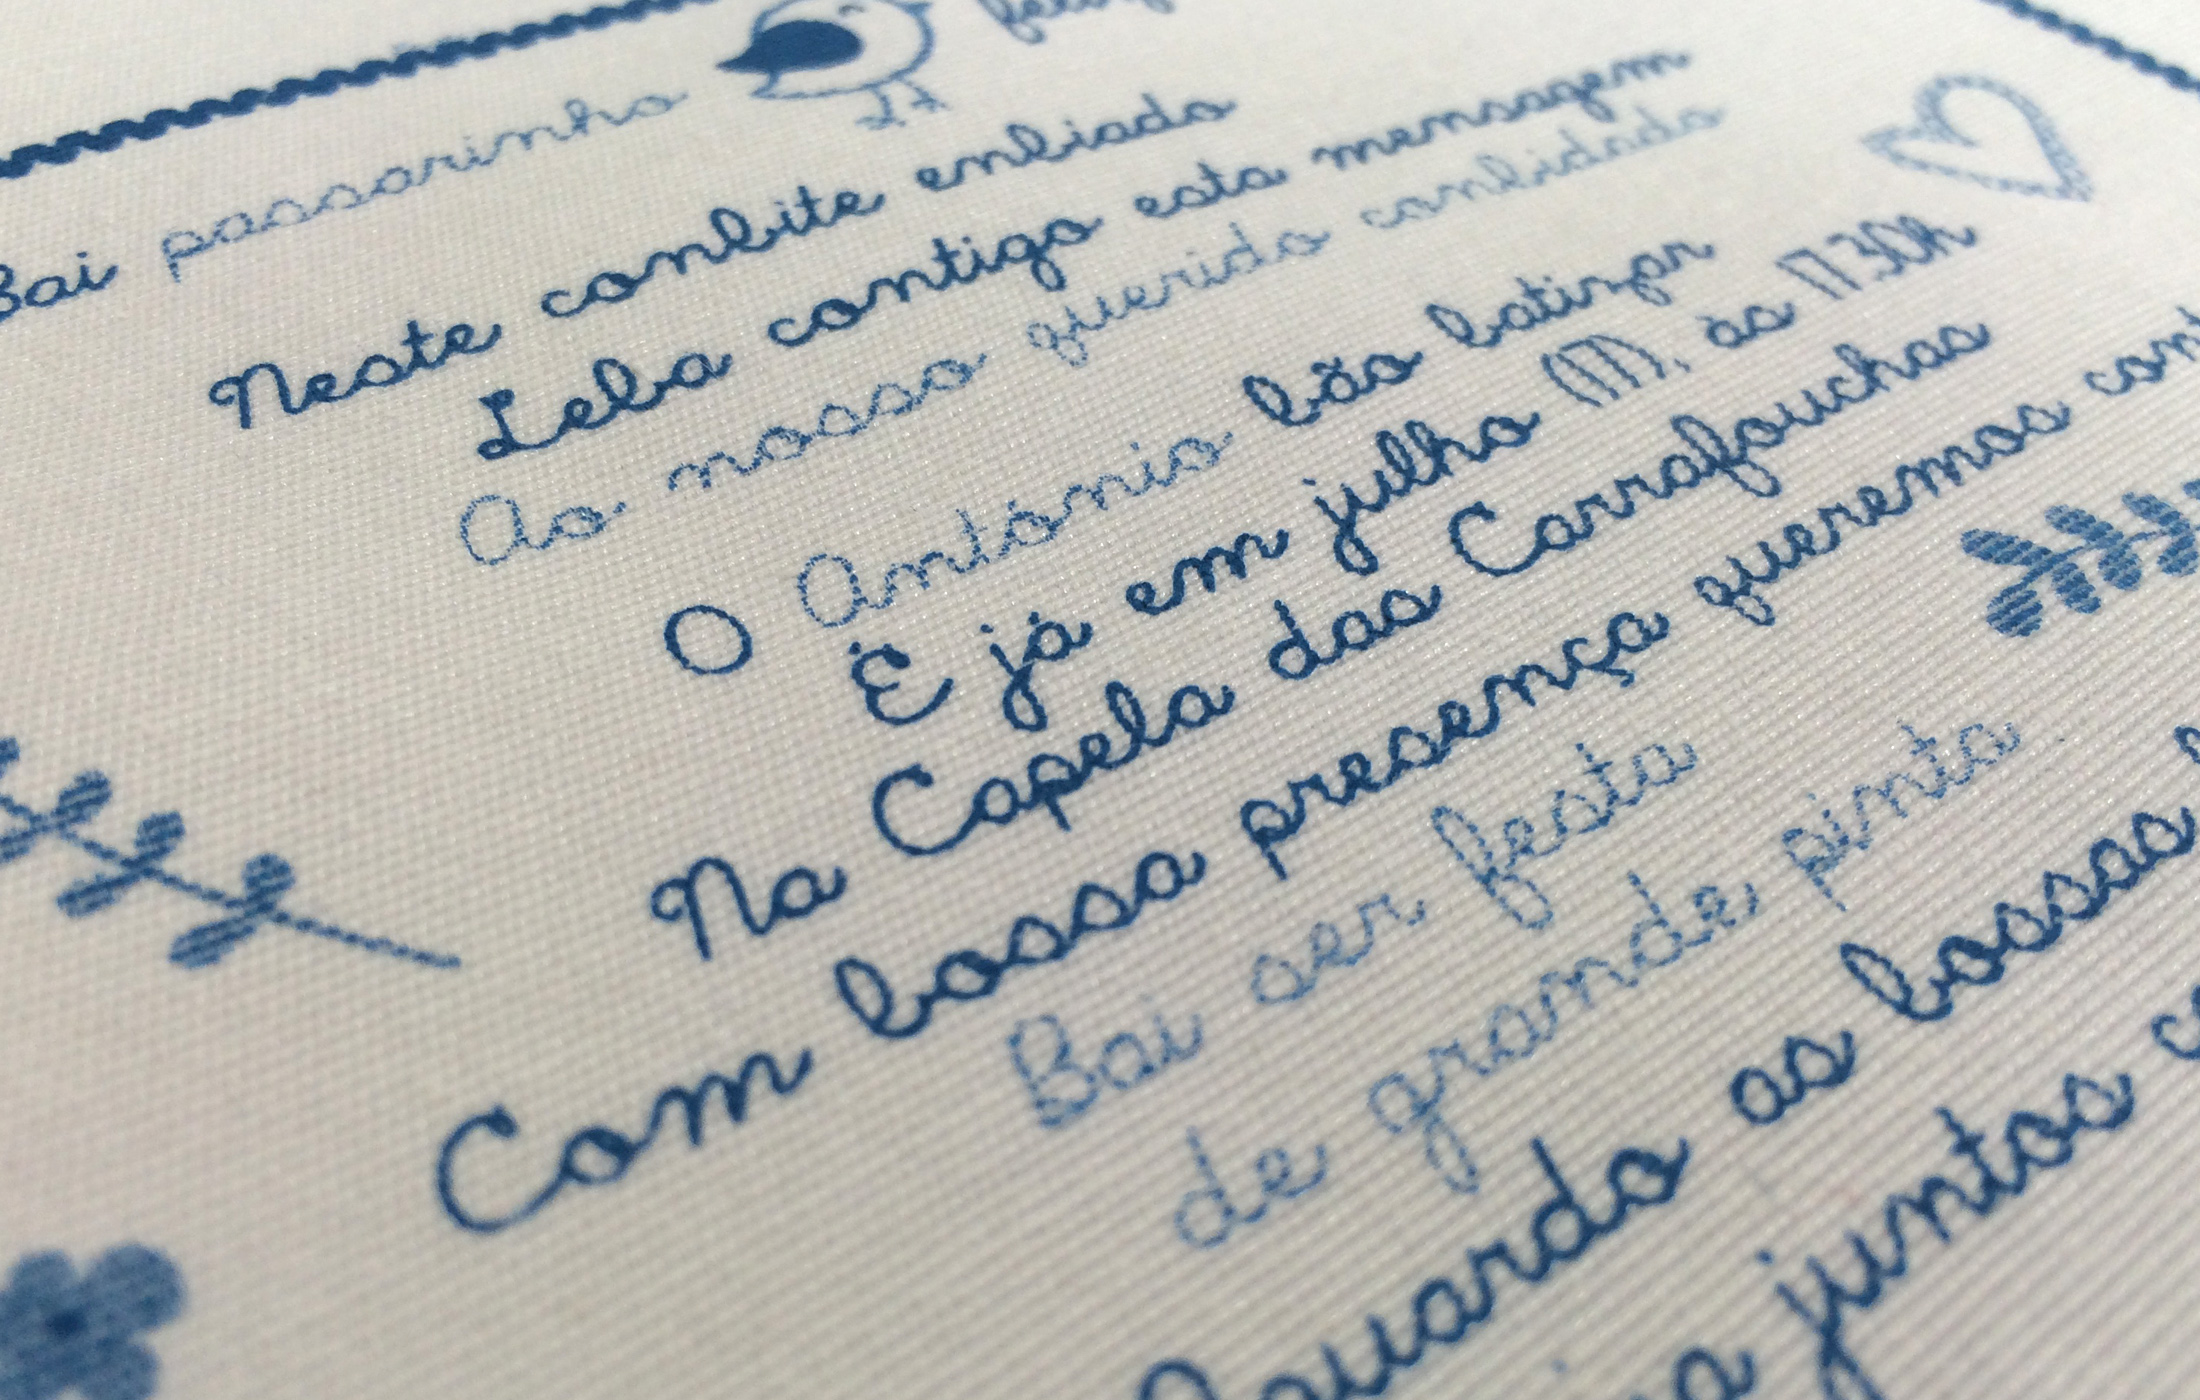 Bai passarinho
Neste conbite enbiado
Leba contigo esta mensagem
Ao nosso querido conbidado
O António bão batizar
É já em julho (17), às 17.30h
Na Capela das Carrafouchas
Com bossa presença queremos
Bai ser festa
de grande pinta
as bossas
juntos